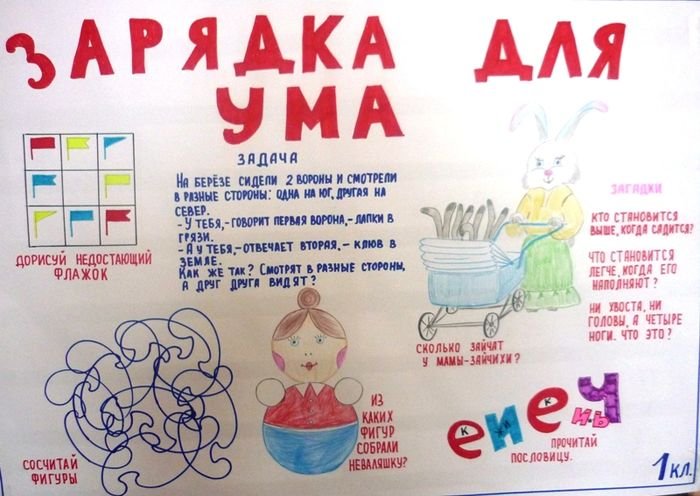 ЗАРЯДКА ДЛЯ
УМА
ЗАДАЧА
НА БЕРЁЗЕ СИДЕЛИ 2 ВОРОНЫ И СМОТРЕЛИ
В РАЗНЫЕ СТОРОНЫ: ОДНА НА ЮГ, ДРУГАЯ НА
СЕВЕР.
- У ТЕБЯ, - ГОВОРИТ ПЕРВАЯ ВОРОНА, - ЛАПКИ В
ГРЯЗИ.
- А У ТЕБЯ, - ОТВЕЧАЕТ ВТОРАЯ, - КЛЮВ В
ЗЕМЛЕ.
КАК ЖЕ ТАК? СМОТРЯТ В РАЗНЫЕ СТОРОНЫ,
А ДРУГ ДРУГА ВИДЯТ?
ДОРИСУЙ НЕДОСТАЮЩИЙ
ФЛАЖОК
ЗАГАДКИ
КТО СТАНОВИТСЯ
ВЫШЕ, КОГДА САДИТСЯ?
ЧТО СТАНОВИТСЯ
ЛЕГЧЕ, КОГДА ЕГО
НАПОЛНЯЮТ?
НИ ХВОСТА, НИ
ГОЛОВЫ, А ЧЕТЫРЕ
НОГИ. ЧТО ЭТО?
СКОЛЬКО ЗАЙЧАТ
У МАМЫ-ЗАЙЧИХИ?
СОСЧИТАЙ
ФИГУРЫ
ИЗ
КАКИХ
ФИГУР
СОБРАЛИ
НЕВАЛЯШКУ?
е К и ЖИ е К Ч ИНЬ
ПРОЧИТАЙ
ПОСЛОВИЦУ.
1 КЛ.